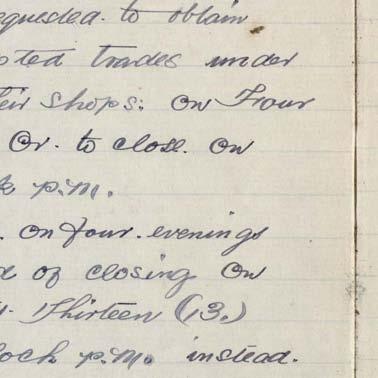 requested. to obtain
pted trades under
eir shops: on Four
Or. to close. on
k p.m.
. on four. evenings
d of closing on
. Thirteen (13.)
lock p.m. instead.